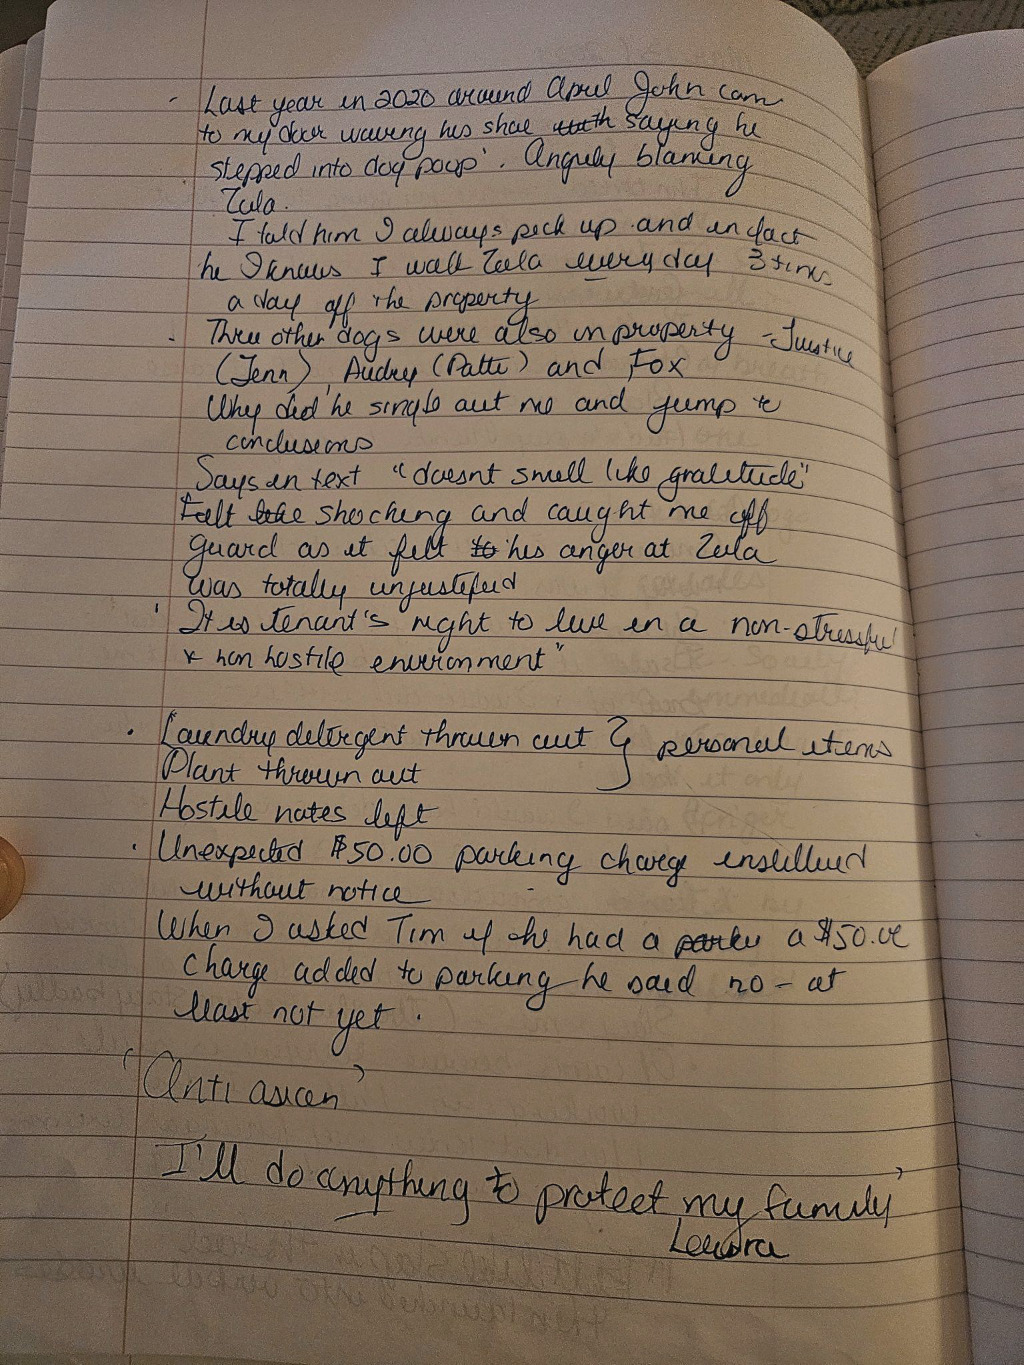 - Last year in 2020 around April John cam
to my door waving his shoe saying he
stepped into dog poop'. Angrily blaming
Zula.
I told him I always pick up and in fact
he knows I walk Zula every day 3 times
a day off the property
Three other dogs were also in property - Justice
(Jenn), Audrey (Patti) and Fox
Why did he single out me and jump to
conclusions
Says in text "doesnt smell like gratitude"
Felt like shocking and caught me off
guard as it felt to his anger at Zula
was totally unjustified
' It is tenant's right to live in a non-stressful
x non hostile environment"
· Laundry detergent thrown out } personal items
Plant thrown out
Hostile notes left
· Unexpected $50.00 parking charge
without notice
When I asked Tim if he had a a $50.00
charge added to parking he said no - at
least not yet.
'Anti asian'
I'll do anything to protect my family'